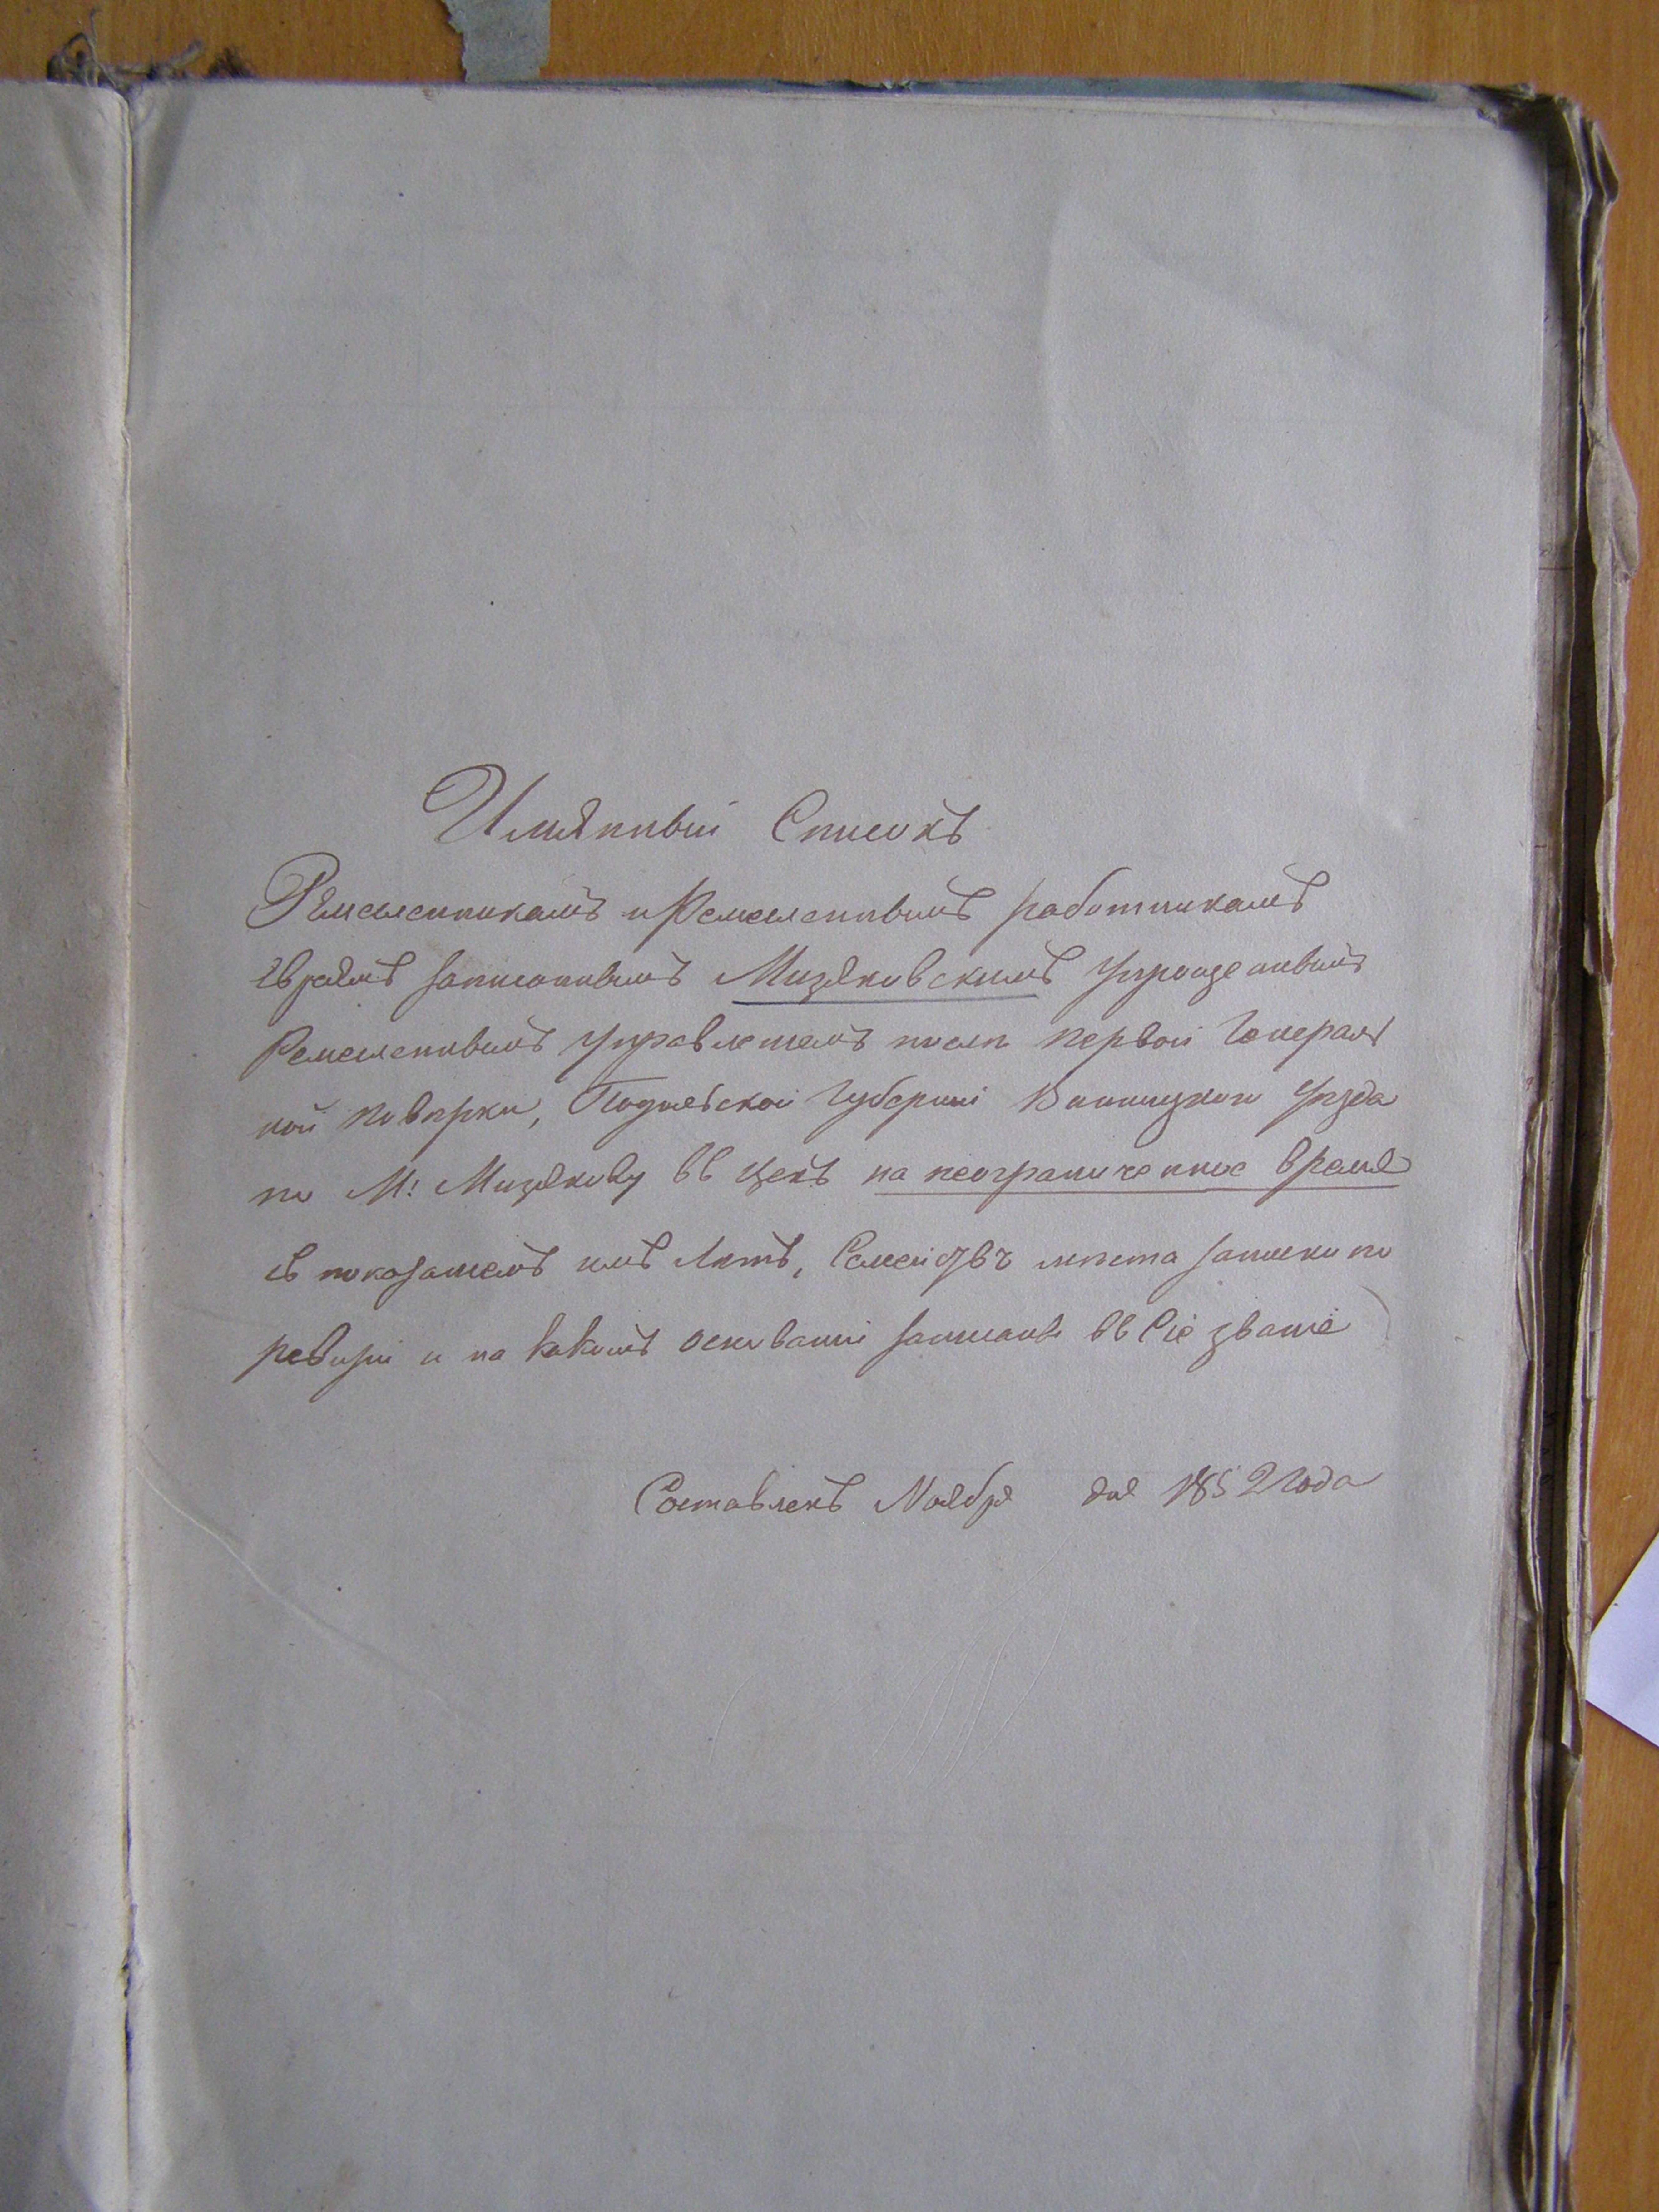 Имянный Списокъ
Ремесленникамъ и Ремесленнымъ работникамъ
Евреямъ записаннымъ Мизяковскимъ Упраздненнымъ
Ремесленнымъ Управленіемъ после первой Генераль
ной поверки, Подольской Губерніи Винницкого Уезда
по М: Мизякову въ цехъ на неограниченное время
съ показаніемъ имъ Летъ, Семействъ места записки по
ревизіи и на какомъ основаніи записаны въ Сіе званіе
Составленъ Ноября дня 1852 года